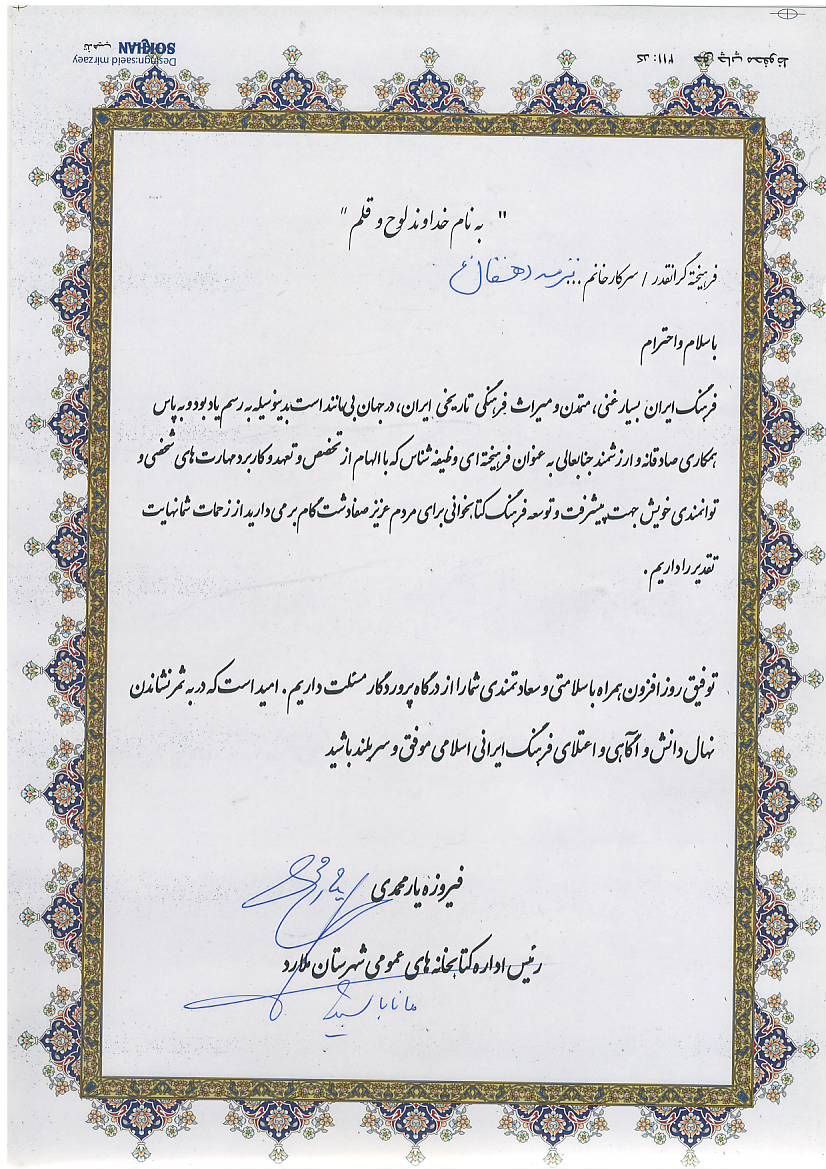 SOKHAN تذهیب
Design:saeid mirzaey
حق چاپ محفوظ کد: ۲۱۱
" به نام خداوند لوح و قلم "
فرهیخته گرانقدر / سرکار خانم ... دهقان
با سلام و احترام
فرهنگ ایران بسیار غنی، متمدن و میراث فرهنگی تاریخی ایران، در جهان بی مانند است بدینوسیله به رسم یادبود و به پاس
همکاری صادقانه و ارزشمند جنابعالی به عنوان فرهیخته ای وظیفه شناس که با الهام از تخصص و تعهد و کاربرد مهارت های شخصی و
توانمندی خویش جهت پیشرفت و توسعه فرهنگ کتابخوانی برای مردم عزیز صفادشت گام بر می دارید از زحمات شما نهایت
تقدیر را داریم .
توفیق روز افزون همراه با سلامتی و سعادتمندی شما را از درگاه پروردگار مسئلت داریم . امید است که در به ثمر نشاندن
نهال دانش و آگاهی و اعتلای فرهنگ ایرانی اسلامی موفق و سربلند باشید
فیروزه یارمحمدی
رئیس اداره کتابخانه های عمومی شهرستان ملارد
مانا باشید